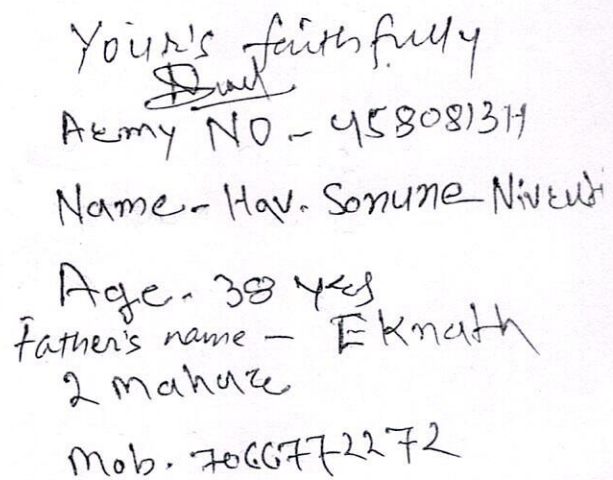 Your's faithfully
Army NO - 4580813H
Name - Hav. Sonune Nivruti
Age - 38 yrs
Father's name - Eknath
2 Mahar
Mob. 7066772272